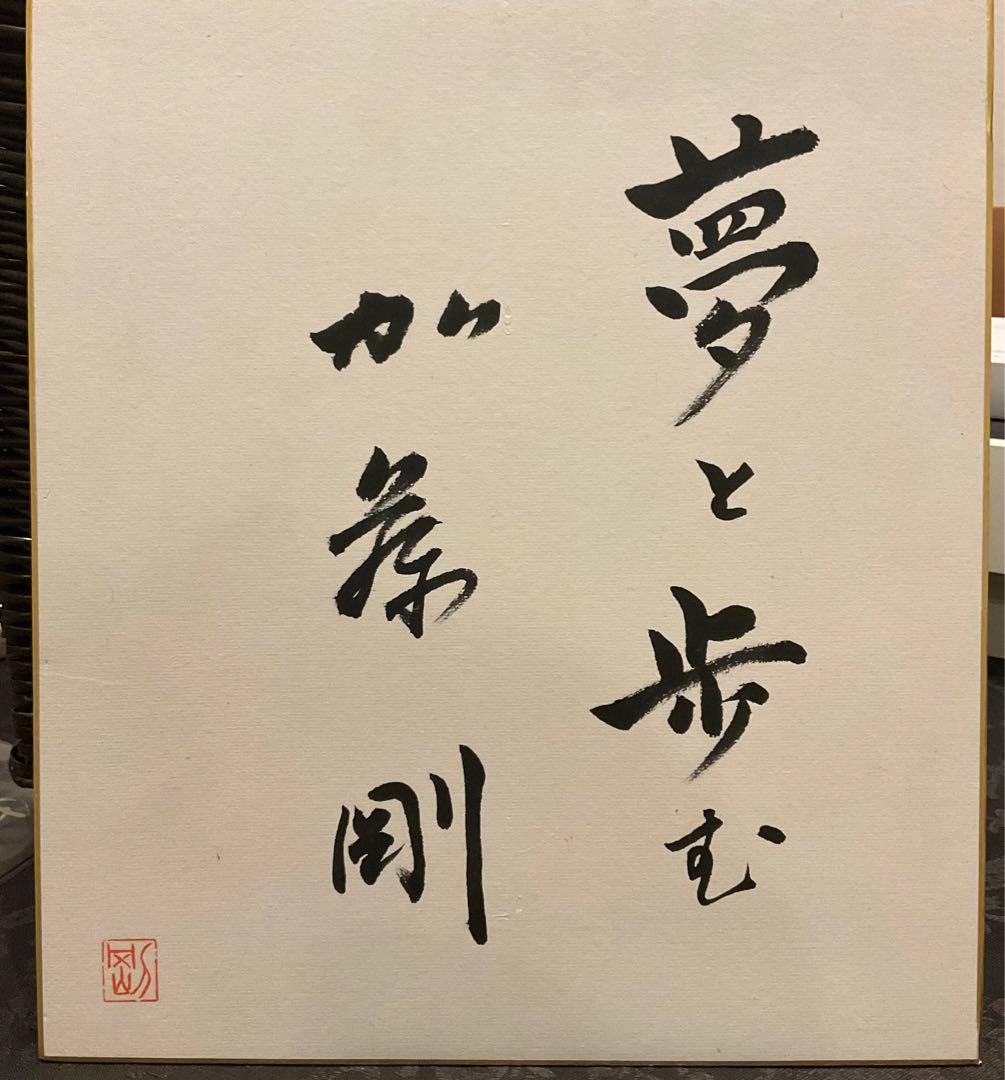 夢と歩む
加藤剛
剛